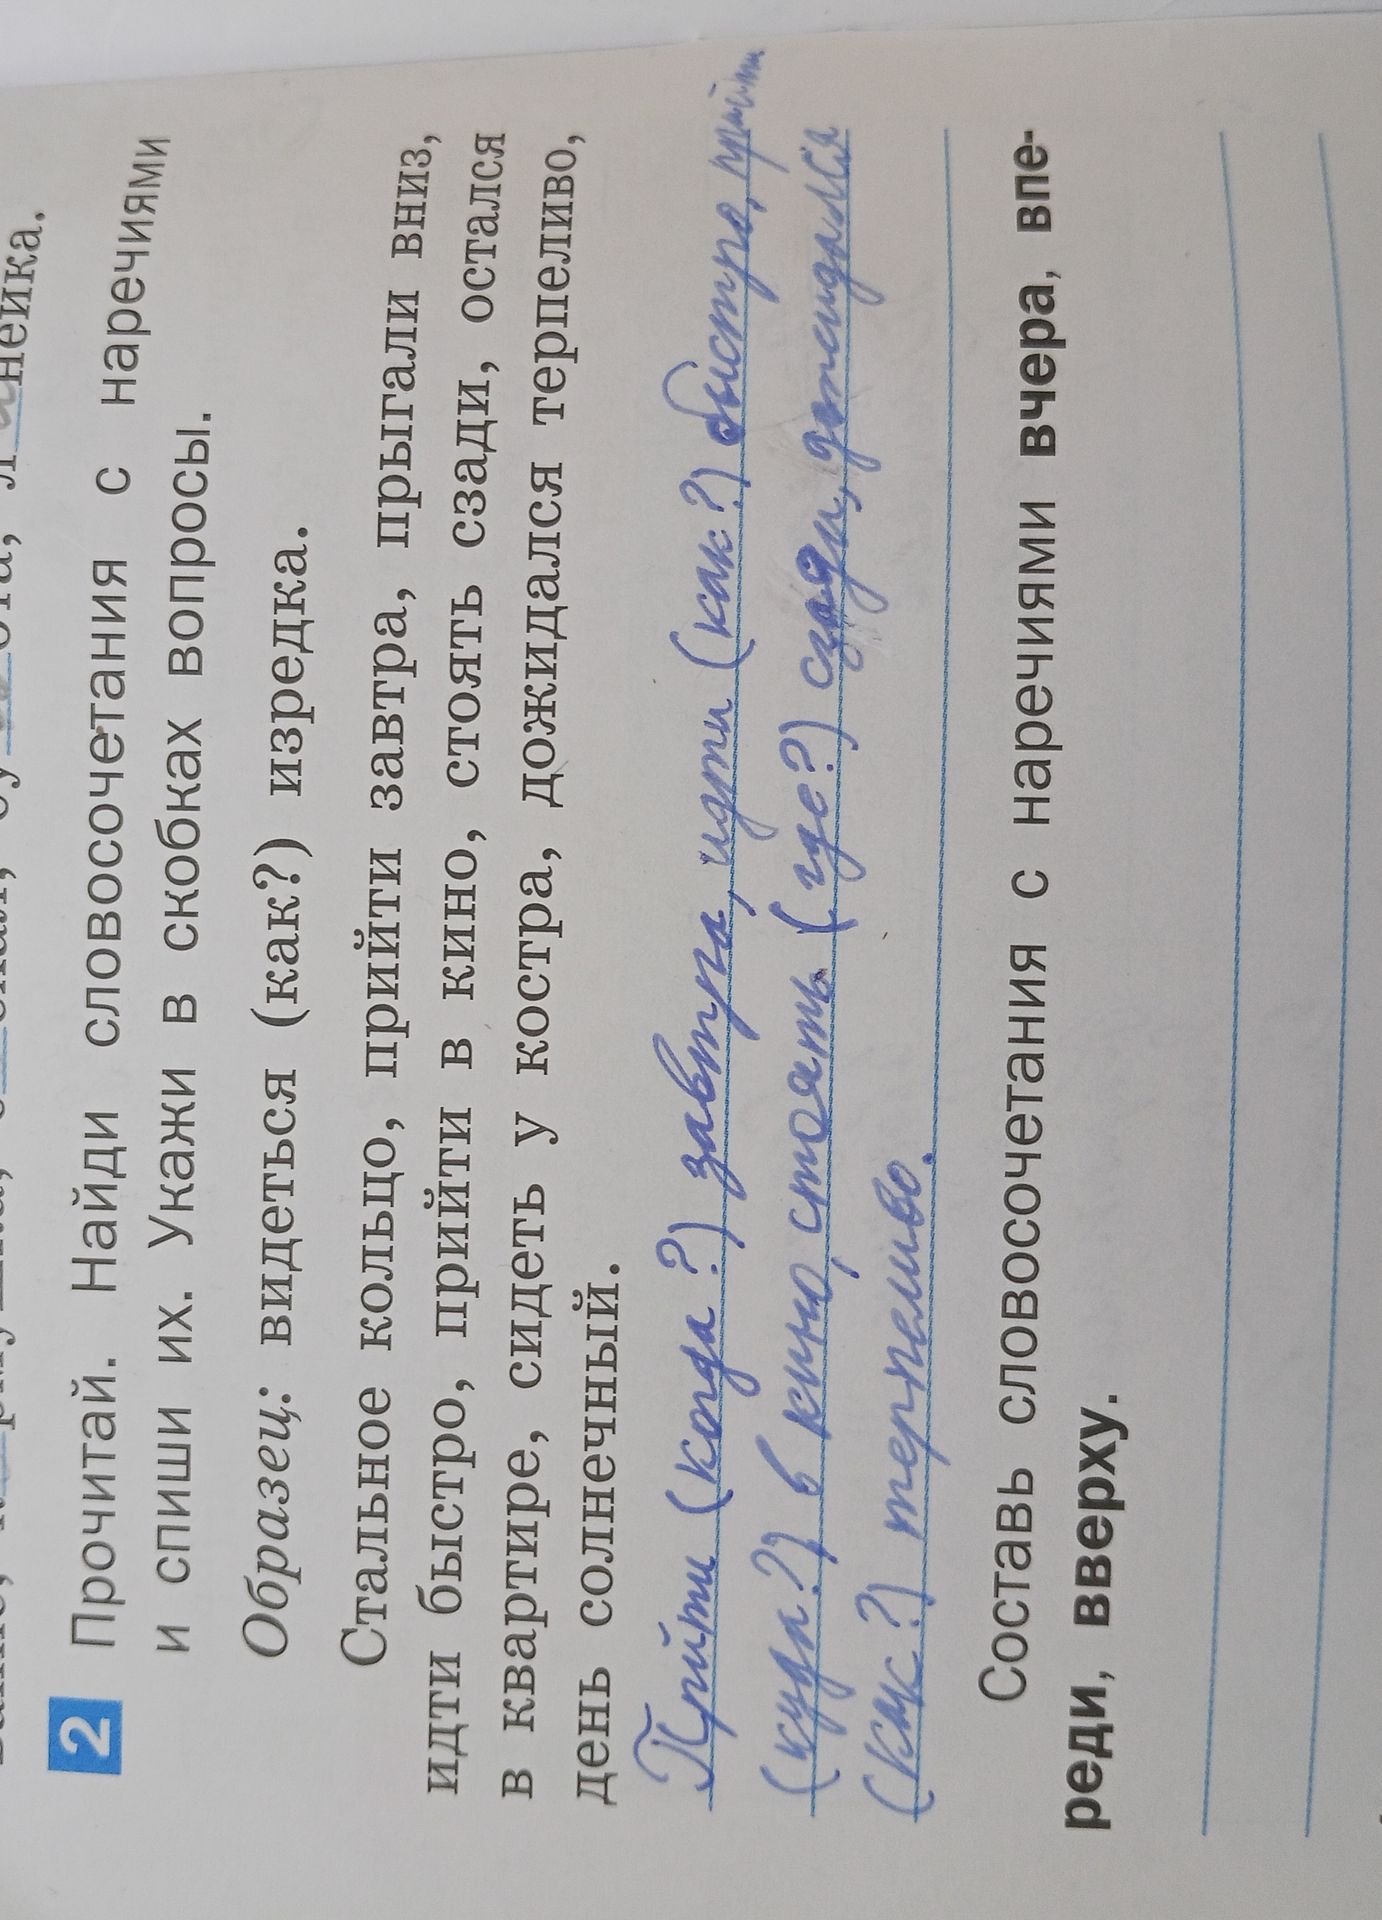 нейка.
2 Прочитай. Найди словосочетания с наречиями
и спиши их. Укажи в скобках вопросы.
Образец: видеться (как?) изредка.
Стальное кольцо, прийти завтра, прыгали вниз,
идти быстро, прийти в кино, стоять сзади, остался
в квартире, сидеть у костра, дожидался терпеливо,
день солнечный.
Прийти (когда?) завтра, идти (как?) быстро, прийти
(куда?) в кино, стоять (где?) сзади, дожидался
(как?) терпеливо.
Составь словосочетания с наречиями вчера, впе-
реди, вверху.